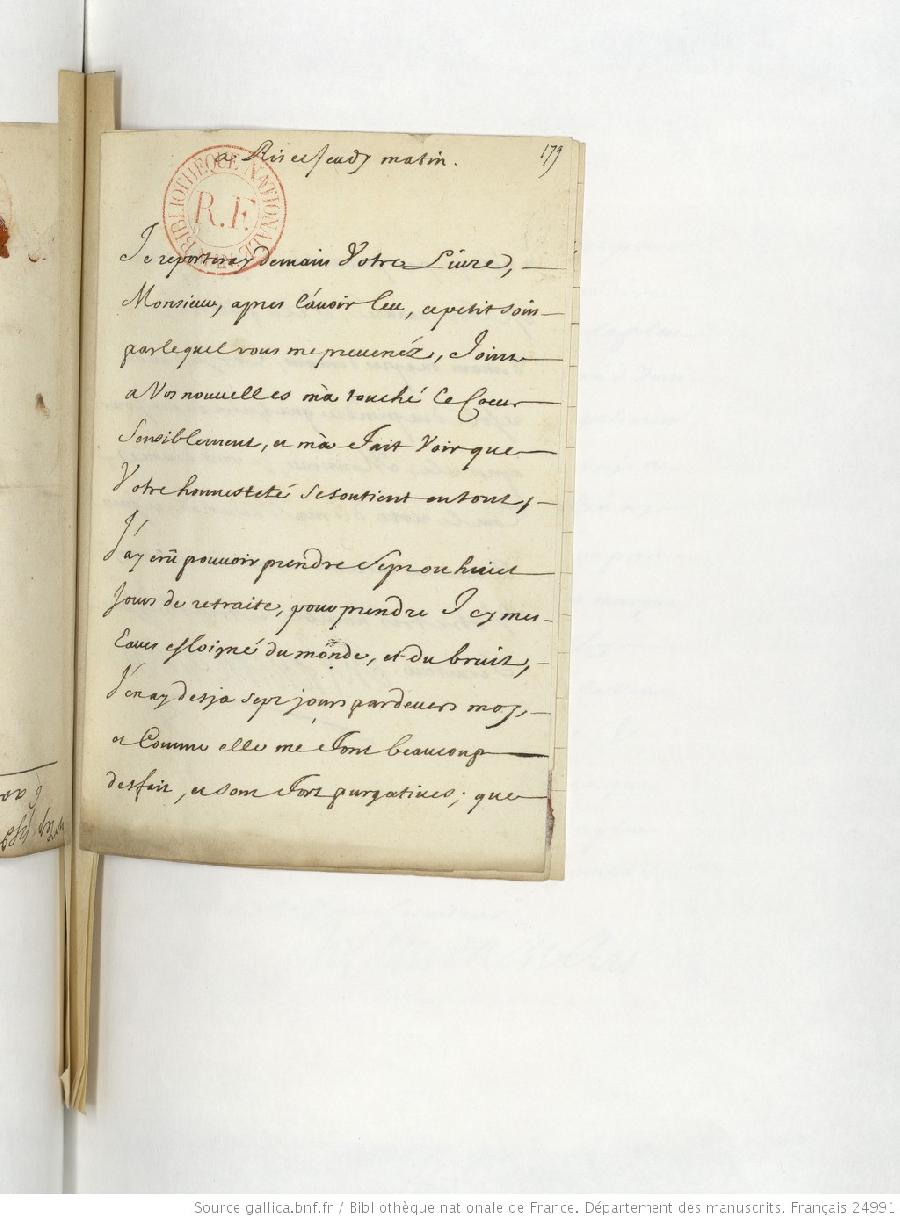 a Ris ce Jeudy matin.
179
BIBLIOTHEQUE NATIONALE
R.F.
Je reporteray demain Votre Livre,
Monsieur, apres l'avoir leu, ce petit soin
par lequel vous me prevenéz, Joint
a Vos nouvelles m'a touché le Coeur
Sensiblement, et m'a fait Voir que
Votre honnesteté se soutient en tout,
J'ay crû pouvoir prendre Sept ou huict
Jours de retraite, pour prendre Icy mes
Eaues esloigné du monde, et du bruit,
J'en ay desja sept jours pardevers moy
et Comme elle me font beaucoup
desfait, et sont fort purgatives; que
Source gallica.bnf.fr / Bibliothèque nationale de France. Département des manuscrits. Français 24991